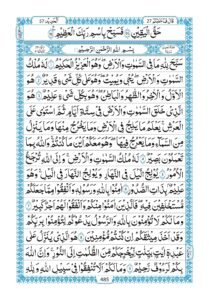 الحدید 57
قال فما خطبکم 27
حَقُّ الْیَقِیْنِ ۚ فَسَبِّحْ بِاسْمِ رَبِّكَ الْعَظِیْمِ
بِسْمِ اللّٰهِ الرَّحْمٰنِ الرَّحِیْمِ
سَبَّحَ لِلّٰهِ مَا فِی السَّمٰوٰتِ وَالْاَرْضِ ۚ وَهُوَ الْعَزِیْزُ الْحَكِیْمُ لَهٗ مُلْكُ
السَّمٰوٰتِ وَالْاَرْضِ ۚ یُحْیٖ وَیُمِیْتُ ۚ وَهُوَ عَلٰی كُلِّ شَیْءٍ قَدِیْرٌ هُوَ
الْاَوَّلُ وَالْاٰخِرُ وَالظَّاهِرُ وَالْبَاطِنُ ۚ وَهُوَ بِكُلِّ شَیْءٍ عَلِیْمٌ هُوَ
الَّذِیْ خَلَقَ السَّمٰوٰتِ وَالْاَرْضَ فِیْ سِتَّةِ اَیَّامٍ ثُمَّ اسْتَوٰی عَلَی
الْعَرْشِ ؕ یَعْلَمُ مَا یَلِجُ فِی الْاَرْضِ وَمَا یَخْرُجُ مِنْهَا وَمَا یَنْزِلُ
مِنَ السَّمَآءِ وَمَا یَعْرُجُ فِیْهَا ؕ وَهُوَ مَعَكُمْ اَیْنَ مَا كُنْتُمْ ؕ وَاللّٰهُ بِمَا
تَعْمَلُوْنَ بَصِیْرٌ لَهٗ مُلْكُ السَّمٰوٰتِ وَالْاَرْضِ ؕ وَاِلَی اللّٰهِ تُرْجَعُ
الْاُمُوْرُ یُوْلِجُ الَّیْلَ فِی النَّهَارِ وَیُوْلِجُ النَّهَارَ فِی الَّیْلِ ؕ وَهُوَ
عَلِیْمٌۢ بِذَاتِ الصُّدُوْرِ اٰمِنُوْا بِاللّٰهِ وَرَسُوْلِهٖ وَاَنْفِقُوْا مِمَّا جَعَلَكُمْ
مُّسْتَخْلَفِیْنَ فِیْهِ ؕ فَالَّذِیْنَ اٰمَنُوْا مِنْكُمْ وَاَنْفَقُوْا لَهُمْ اَجْرٌ كَبِیْرٌ
وَمَا لَكُمْ لَا تُؤْمِنُوْنَ بِاللّٰهِ ۚ وَالرَّسُوْلُ یَدْعُوْكُمْ لِتُؤْمِنُوْا بِرَبِّكُمْ
وَقَدْ اَخَذَ مِیْثَاقَكُمْ اِنْ كُنْتُمْ مُّؤْمِنِیْنَ هُوَ الَّذِیْ یُنَزِّلُ عَلٰی
عَبْدِهٖۤ اٰیٰتٍۭ بَیِّنٰتٍ لِّیُخْرِجَكُمْ مِّنَ الظُّلُمٰتِ اِلَی النُّوْرِ ؕ وَاِنَّ اللّٰهَ
بِكُمْ لَرَءُوْفٌ رَّحِیْمٌ وَمَا لَكُمْ اَلَّا تُنْفِقُوْا فِیْ سَبِیْلِ اللّٰهِ وَلِلّٰهِ
485